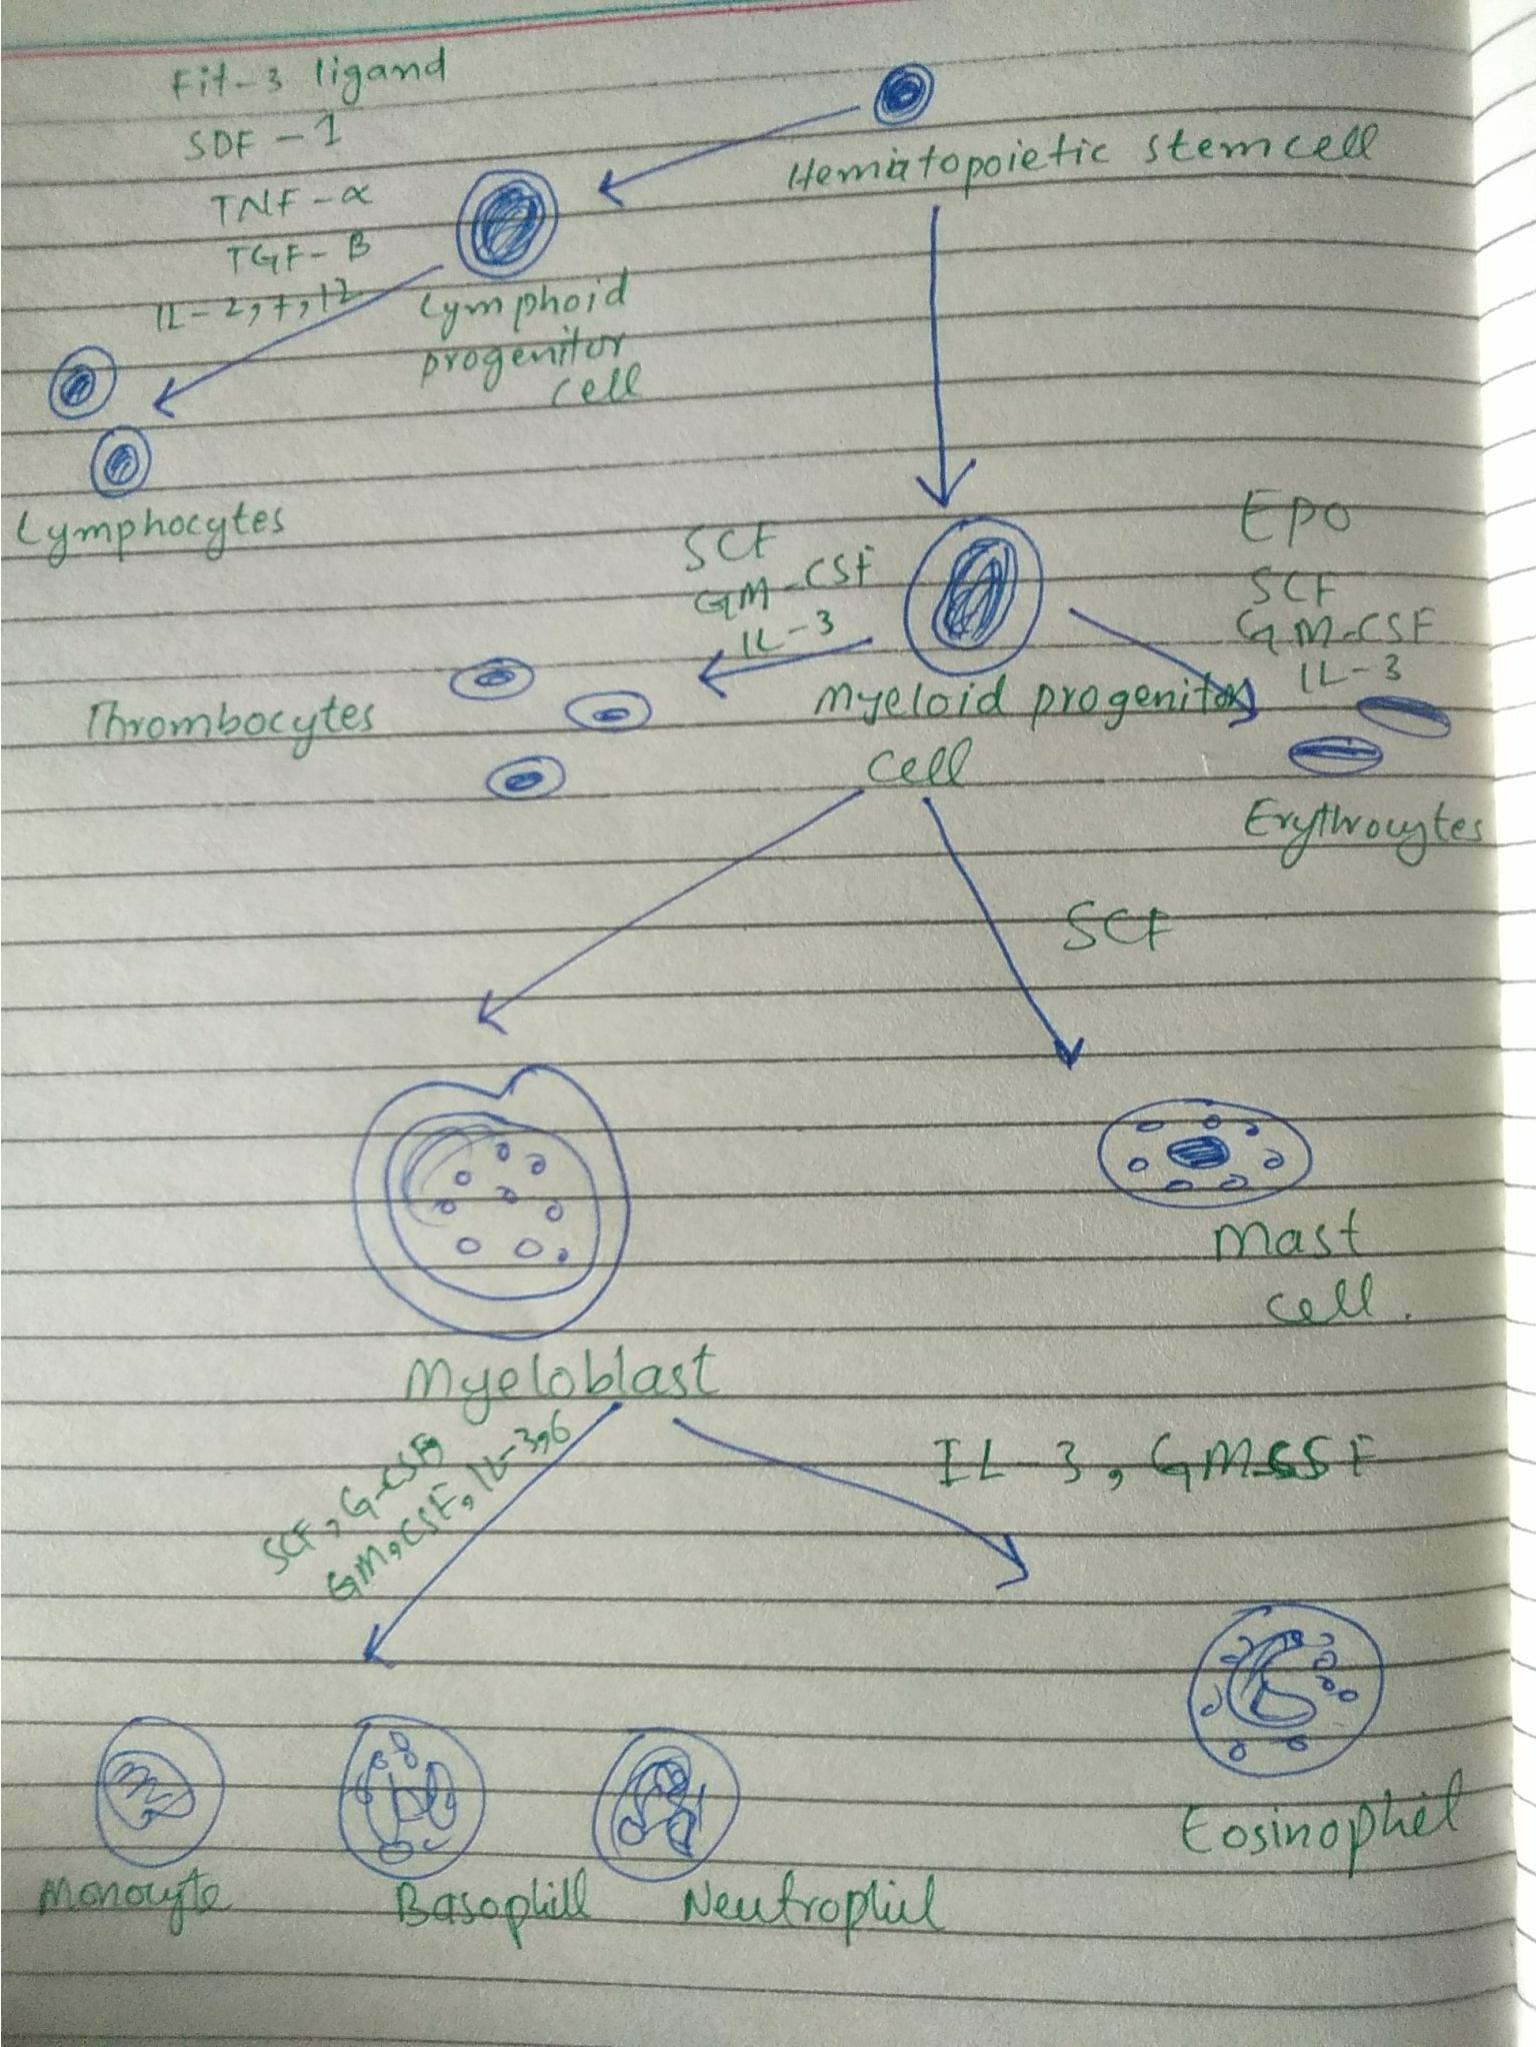 Fit-3 ligand
SDF-1
TNF-α
TGF-B
IL-2,7,12
Hematopoietic stemcell
Lymphoid
progenitor
cell
Lymphocytes
SCF
GM-CSF
IL-3
EPO
SCF
GM-CSF
IL-3
Thrombocytes
Myeloid progenitor
cell
Erythrocytes
SCF
Mast
cell.
Myeloblast
SCF, G-CSF,
GM,CSF, IL-3,6
IL-3, GMCSF
Eosinophil
Monocyte
Basophill
Neutrophil